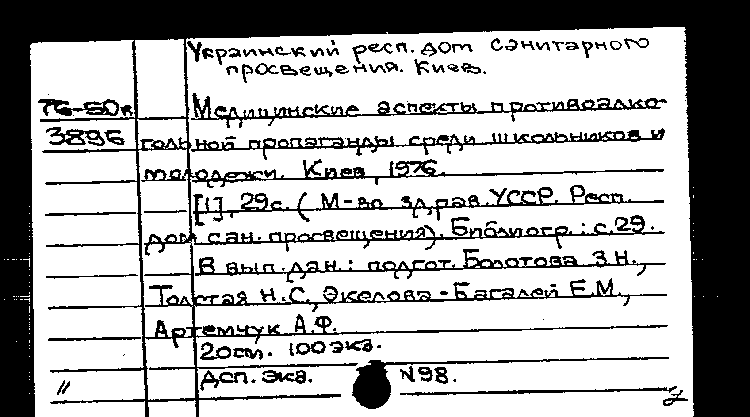 Украинский респ. дом санитарного
просвещения. Киев.
76-50к Медицинские аспекты противоалко-
3896 гольной пропаганды среди школьников и
молодежи. Киев, 1976.
[1], 29с. (М-во здрав. УССР. Респ.
дом сан. просвещения). Библиогр.: с.29.
В вып. дан.: подгот. Болотова З.Н.,
Толстая Н.С., Экелова-Багалей Е.М.,
Артемчук А.Ф.
20см. 100экз.
Дсп. экз. N98.